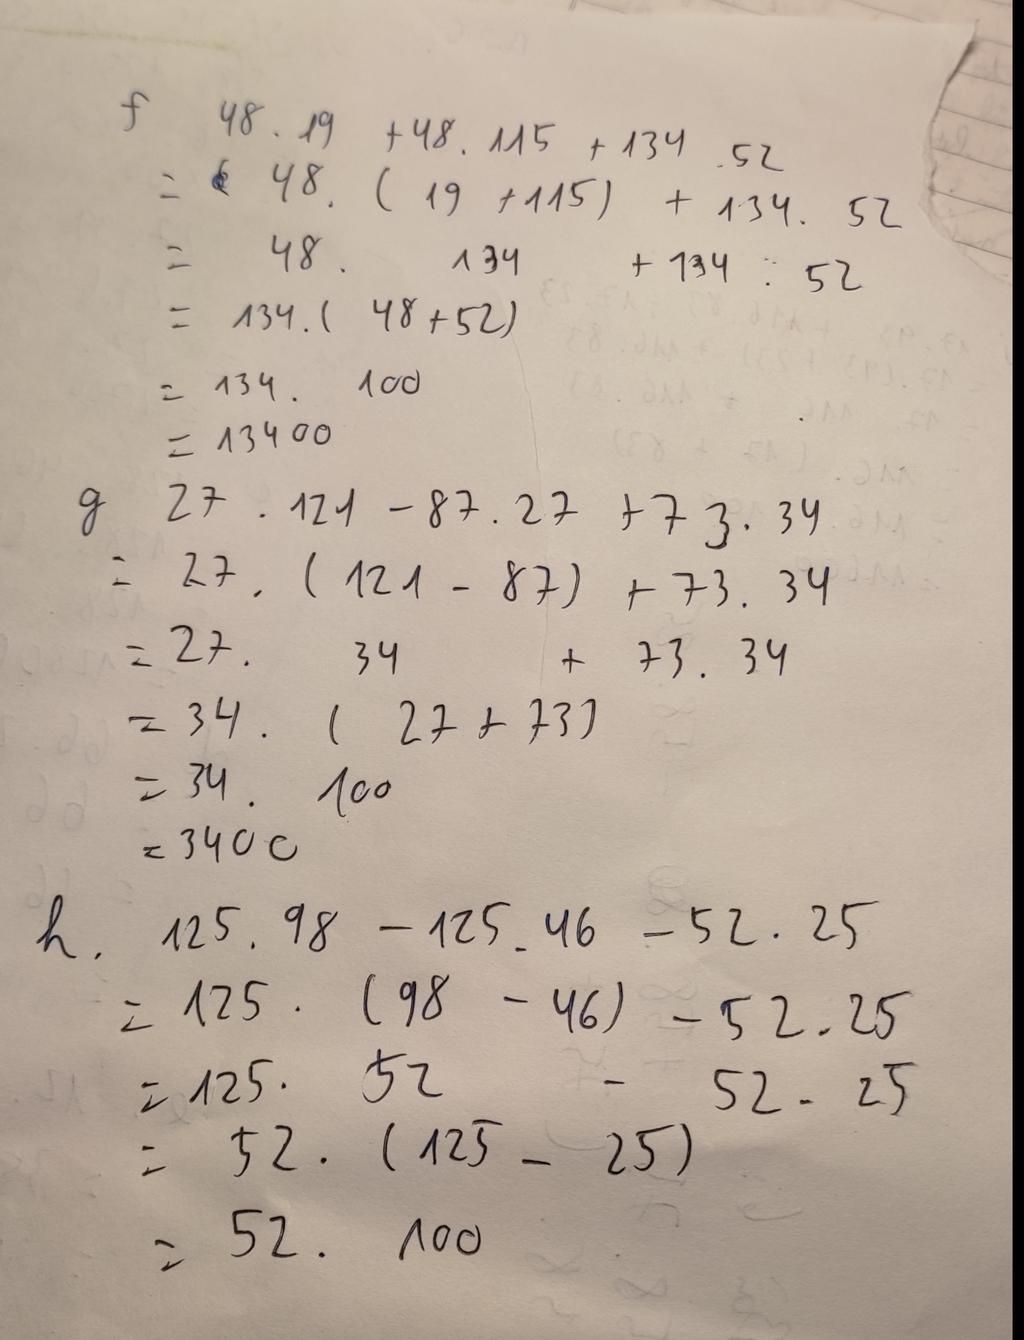 f 48 . 19 + 48 . 115 + 134 . 52
= 48 . ( 19 + 115 ) + 134 . 52
= 48 . 134 + 134 : 52
= 134 . ( 48 + 52 )
= 134 . 100
= 13400
g 27 . 121 - 87 . 27 + 73 . 34
= 27 . ( 121 - 87 ) + 73 . 34
= 27 . 34 + 73 . 34
= 34 . ( 27 + 73 )
= 34 . 100
= 3400
h . 125 . 98 - 125 . 46 - 52 . 25
= 125 . ( 98 - 46 ) - 52 . 25
= 125 . 52 - 52 . 25
= 52 . ( 125 - 25 )
= 52 . 100